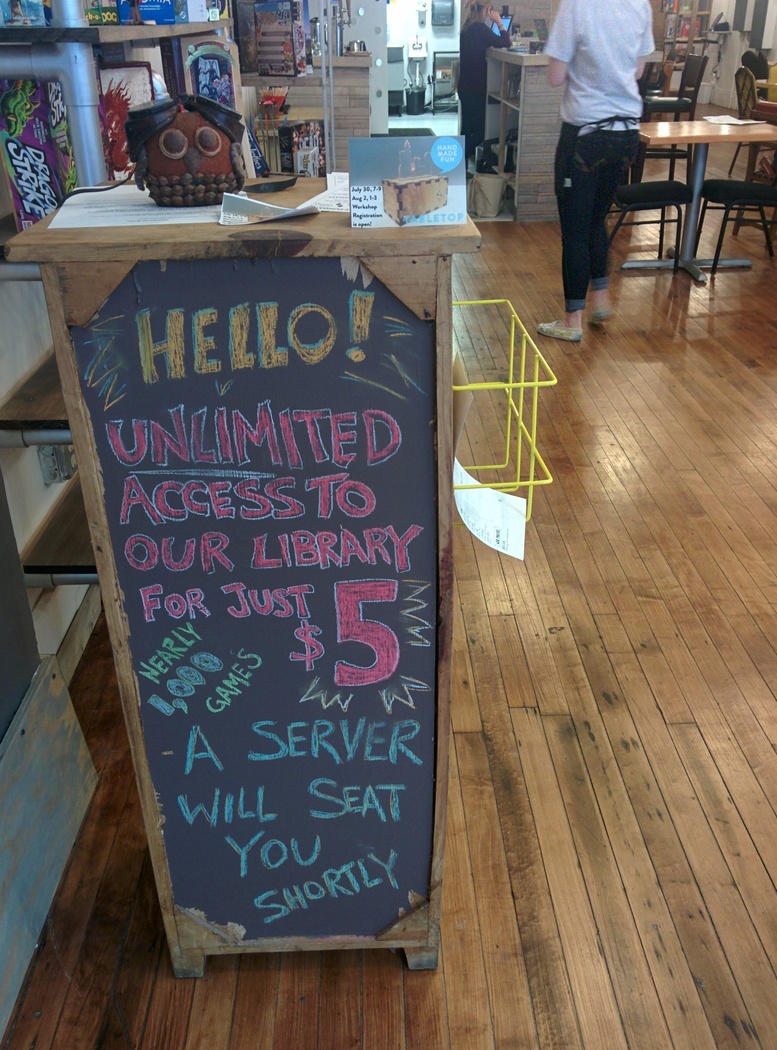 HAND
MADE
FUN
July 30, 7-9
Aug 2, 1-3
Workshop
Registration
is open!
TABLETOP
DRAGON
STRIKE
HELLO!
UNLIMITED
ACCESS TO
OUR LIBRARY
FOR JUST
$5
NEARLY
1,000
GAMES
A SERVER
WILL SEAT
YOU
SHORTLY